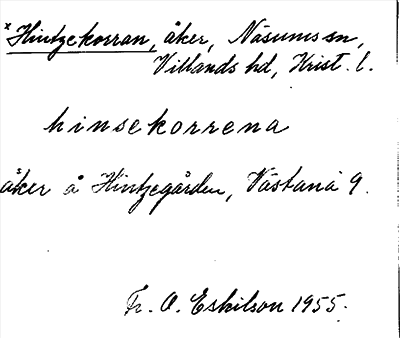 x Hintzekorran, åker, Näsums sn,
Villands hd, Krist. l.
hinsekorrena
åker å Hintzegården, Västanå 9.
Fr. O. Eskilson 1955.